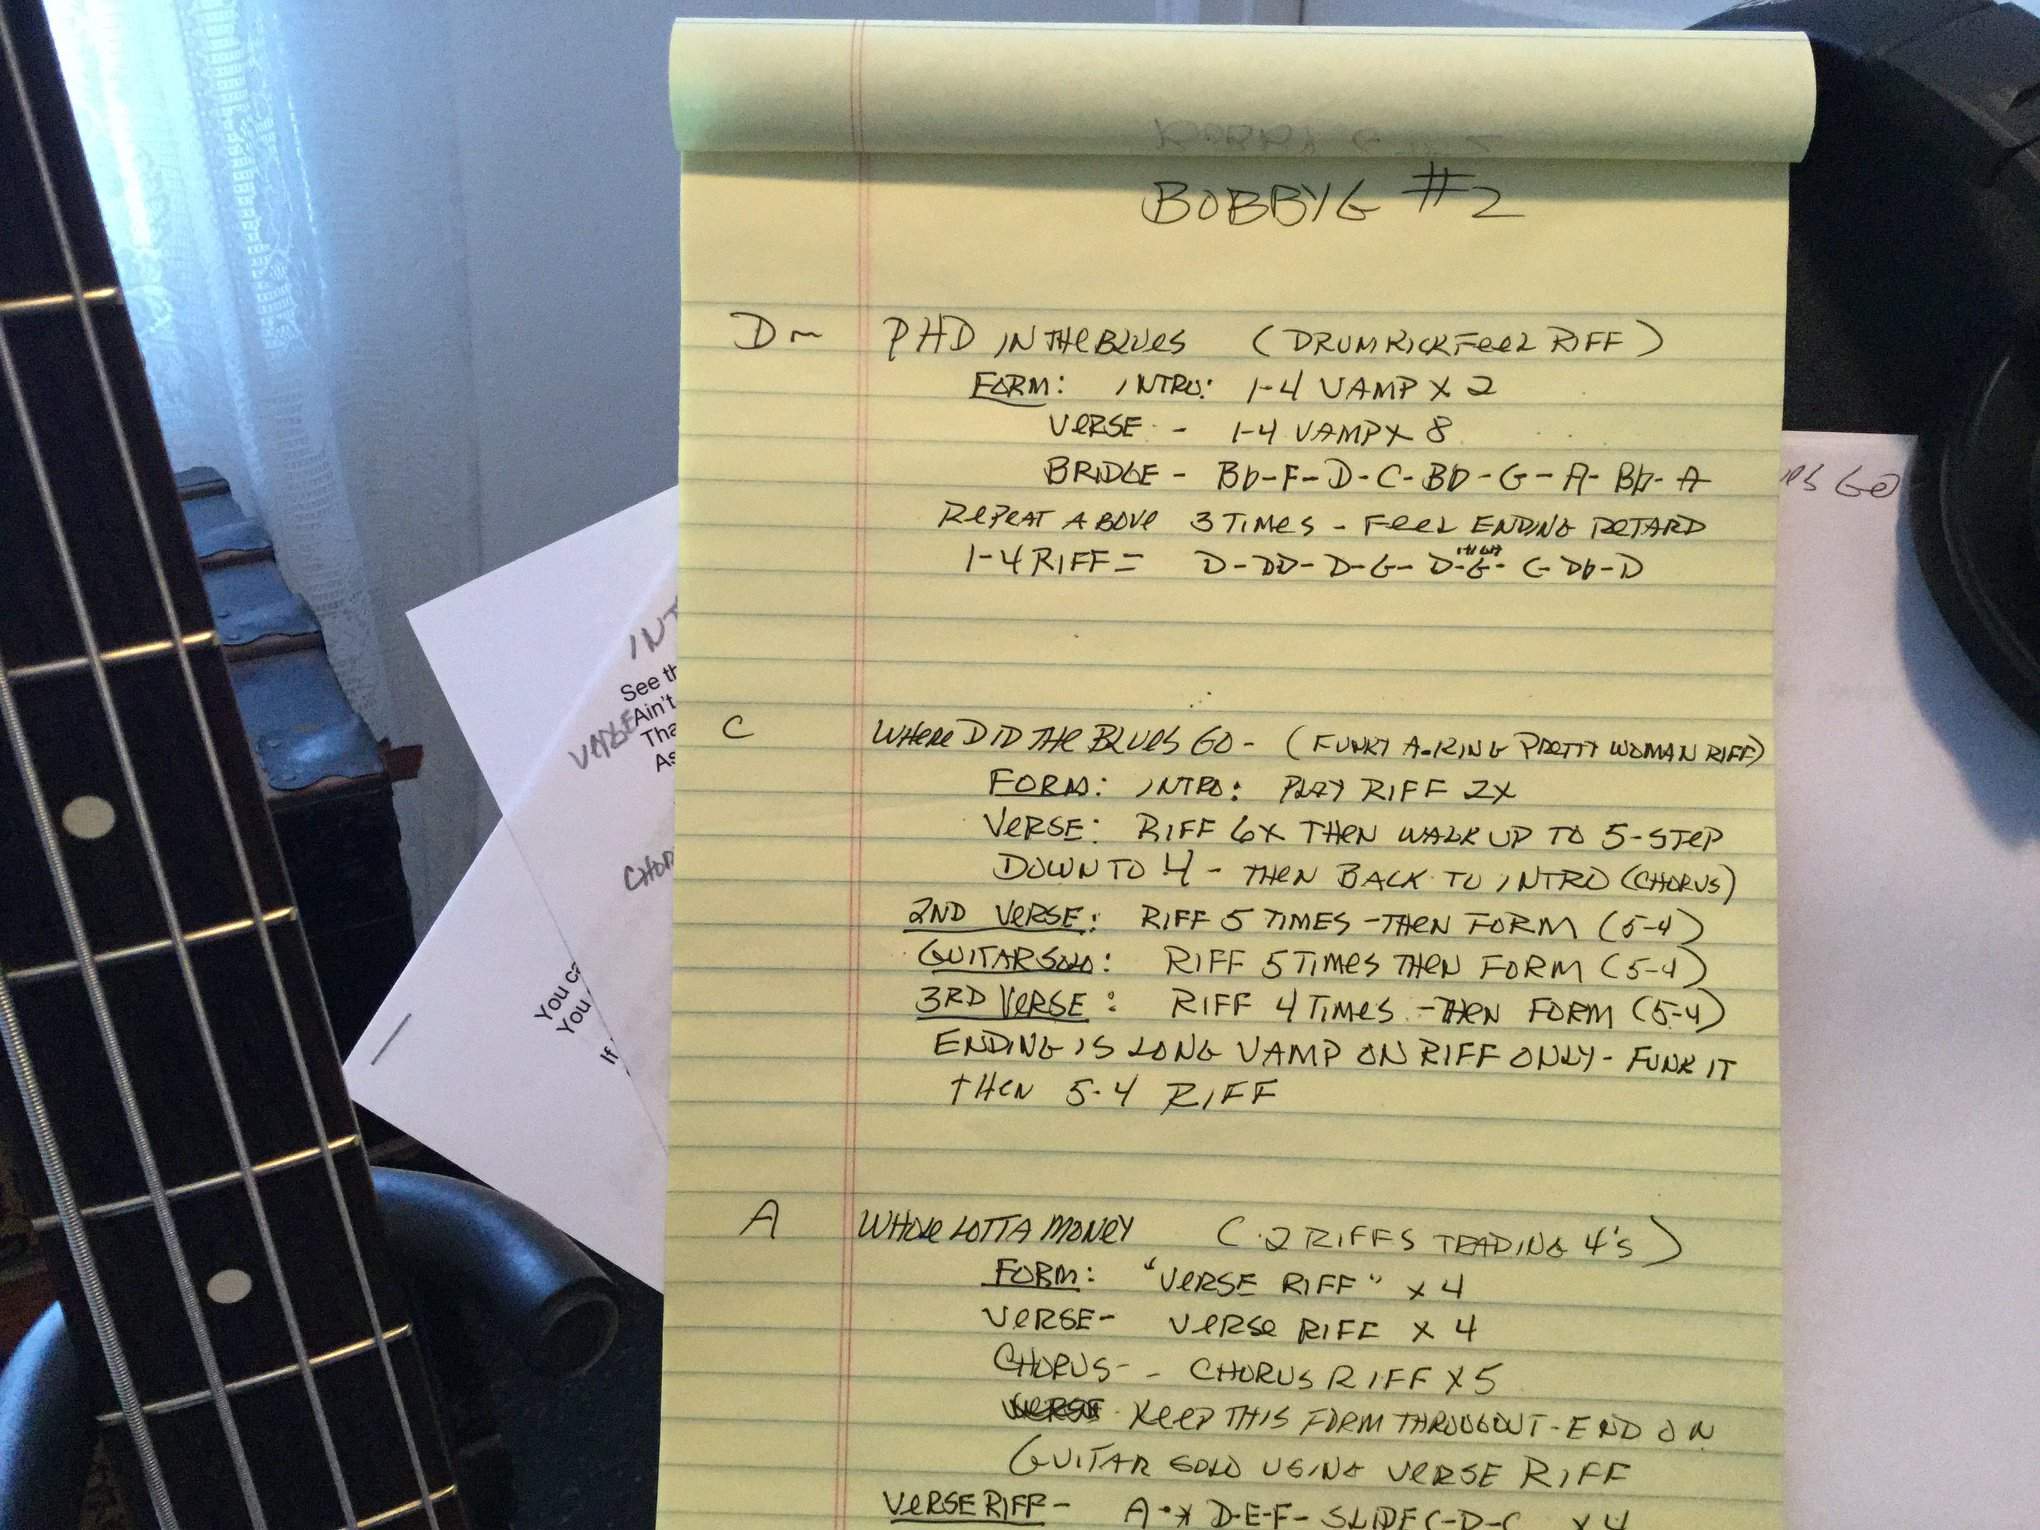 BOBBY G #2
Dm PHD IN THE BLUES (DRUM RICK FEEL RIFF)
FORM: INTRO: 1-4 VAMP X 2
VERSE - 1-4 VAMP X 8
BRIDGE - Bb-F-D-C-Bb-G-A-Bb-A
REPEAT ABOVE 3 TIMES - FEEL ENDING RETARD
1-4 RIFF = D-DD-D-G-D-G-C-Db-D
HIGH
C WHERE DID THE BLUES GO - (FUNKY A. KING PRETTY WOMAN RIFF)
FORM: INTRO: PLAY RIFF 2X
VERSE: RIFF 6X THEN WALK UP TO 5-STEP
DOWN TO 4 - THEN BACK TO INTRO (CHORUS)
2ND VERSE: RIFF 5 TIMES - THEN FORM (5-4)
GUITAR SOLO: RIFF 5 TIMES THEN FORM (5-4)
3RD VERSE: RIFF 4 TIMES - THEN FORM (5-4)
ENDING IS LONG VAMP ON RIFF ONLY - FUNK IT
THEN 5-4 RIFF
A WHOLE LOTTA MONEY (2 RIFFS TRADING 4's)
FORM: "VERSE RIFF" X 4
VERSE - VERSE RIFF X 4
CHORUS - CHORUS RIFF X 5
KEEP THIS FORM THROUGOUT - END ON
GUITAR SOLO USING VERSE RIFF
VERSE RIFF - A D-E-F- SLIDE C-D-C X4
INT
See th
VERSE Ain't
Tha
As
CHOR
You ca
You
If
GO